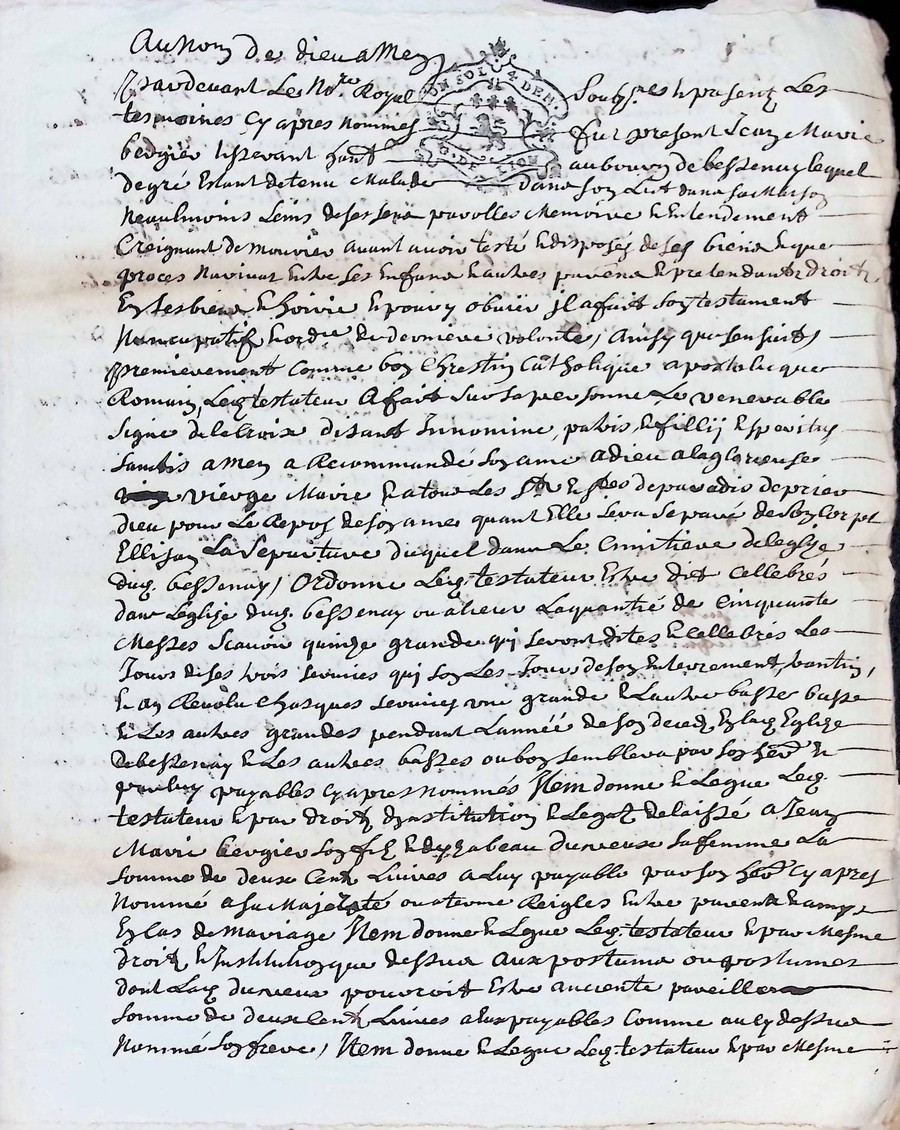 Au Nom de dieu amen
Pardevant Le No.re Royal soubsig.nes & presentz Les
tesmoins Cy apres Nommes fut present Jean Marie
bergier tisserant hant au bourg de bessenay lequel
degré Estant detenu Malade dans son Lict dans sa Maison
Neaulmoins sains de ses sens parolles Memoire & Entendement
Creignant de mourier avant avoir testé & disposés de ses biens & que
proces narivat Entre ses Enfans & autres parens & pretendantz droitz
En ses biens & hoirie & pour y obuier jl a fait son testament
Noncupatif & ordre de derniere volonte, Ainsy que sensuit,
premierement Comme bon Chrestin Catholique apostolicque
Romain, Led. testateur A fait sur sa personne Le venerable
signe de la Croix disant Innomine, patris & fillij & speritus
santis amen a Recommandé son ame a dieu a la glorieuse
vierge Marie & a tous Les S.ts & S.tes de paradis de prier
dieu pour Le Repos de son ame quant Elle sera separé de son Corps
Ellisan La Sepurture diceluy dans Le Cimitiere de leglize
dud. bessenay, Ordonne Led. testateur Estre dit Cellebrés
dans Leglise dud. bessenay ou alieur La quantité de Cinquante
Messes Scavoir quinze grande qi seront dites & Cellebrés Les
Jours de ses trois services qui son Les Jour de son Enterrement, quarantin,
& an Revolu Chasques services une grande & Lautre basse basse
& Les autres grandes pendant Lannéé de son deces En lad. Eglize
de bessenay & Les autres basses ou bon semblera par son her.er &
par luy payables Cy apres nommés Item donne & Legue Led.
testateur & par droit dinstitution & Legat delaissé a Jean
Marie bergier son filz & dyzabeau durieux sa femme La
somme de deux Centz Livres a Luy payable par son her.er Cy apres
Nommé a sa Majorité ou a terme Reigles Entre parents & amys
En Cas de Mariage Item donne & Legue Led. testateur & par Mesme
droit & Institution que dessus aux postume ou postumes
dont Lad. durieux pourroit Estre anciente pareille
somme de deux Centz Livres a Eux payables Comme au Cy dessus
Nommé son frere, Item donne & Legue Led. testateur & par Mesme